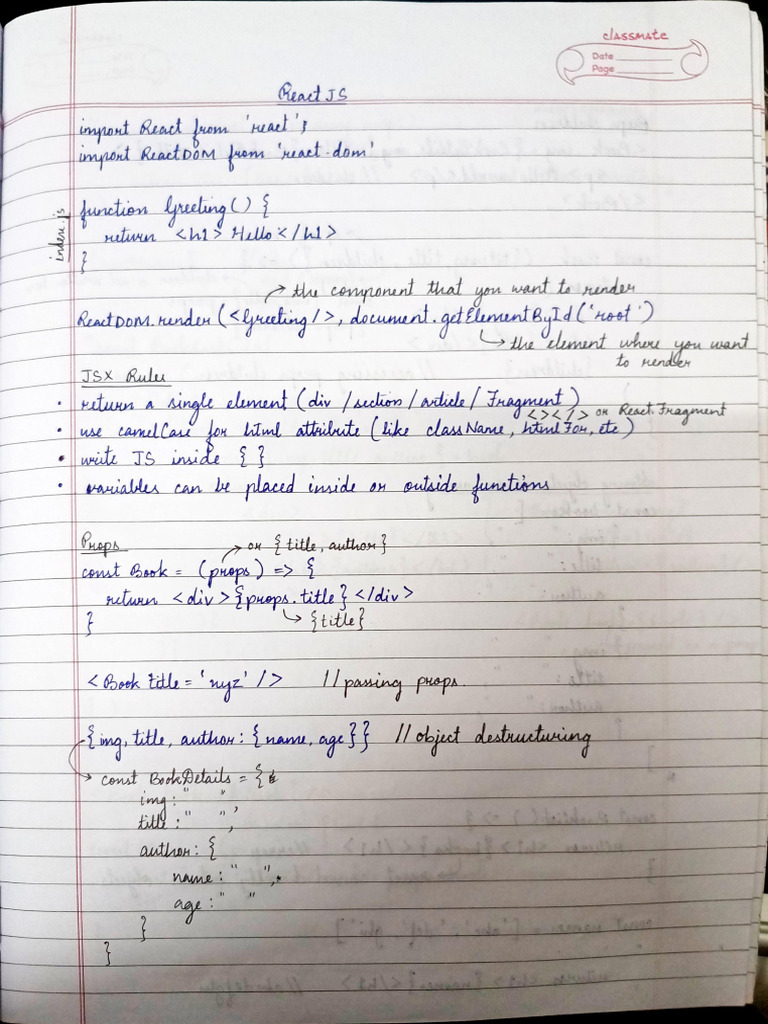 classmate
Date
Page
ReactJS
import React from 'react';
import ReactDOM from 'react-dom'
index.js
function Greeting() {
return <h1> Hello </h1>
}
→ the component that you want to render
ReactDOM.render(<Greeting/>, document.getElementById('root')
→ the element where you want
to render
JSX Rules
• return a single element (div/section/article/Fragment)
<></> or React.Fragment
• use camelCase for html attribute (like className, htmlFor, etc)
• write JS inside { }
• variables can be placed inside or outside functions
Props
→ or {title, author}
const Book = (props) => {
return <div>{props.title}</div>
→ {title}
}
<Book title = 'xyz' /> //passing props.
{img, title, author: {name, age}} //object destructuring
→ const BookDetails = {
img: " ",
title: " ",
author: {
name: " ",
age: " "
}
}